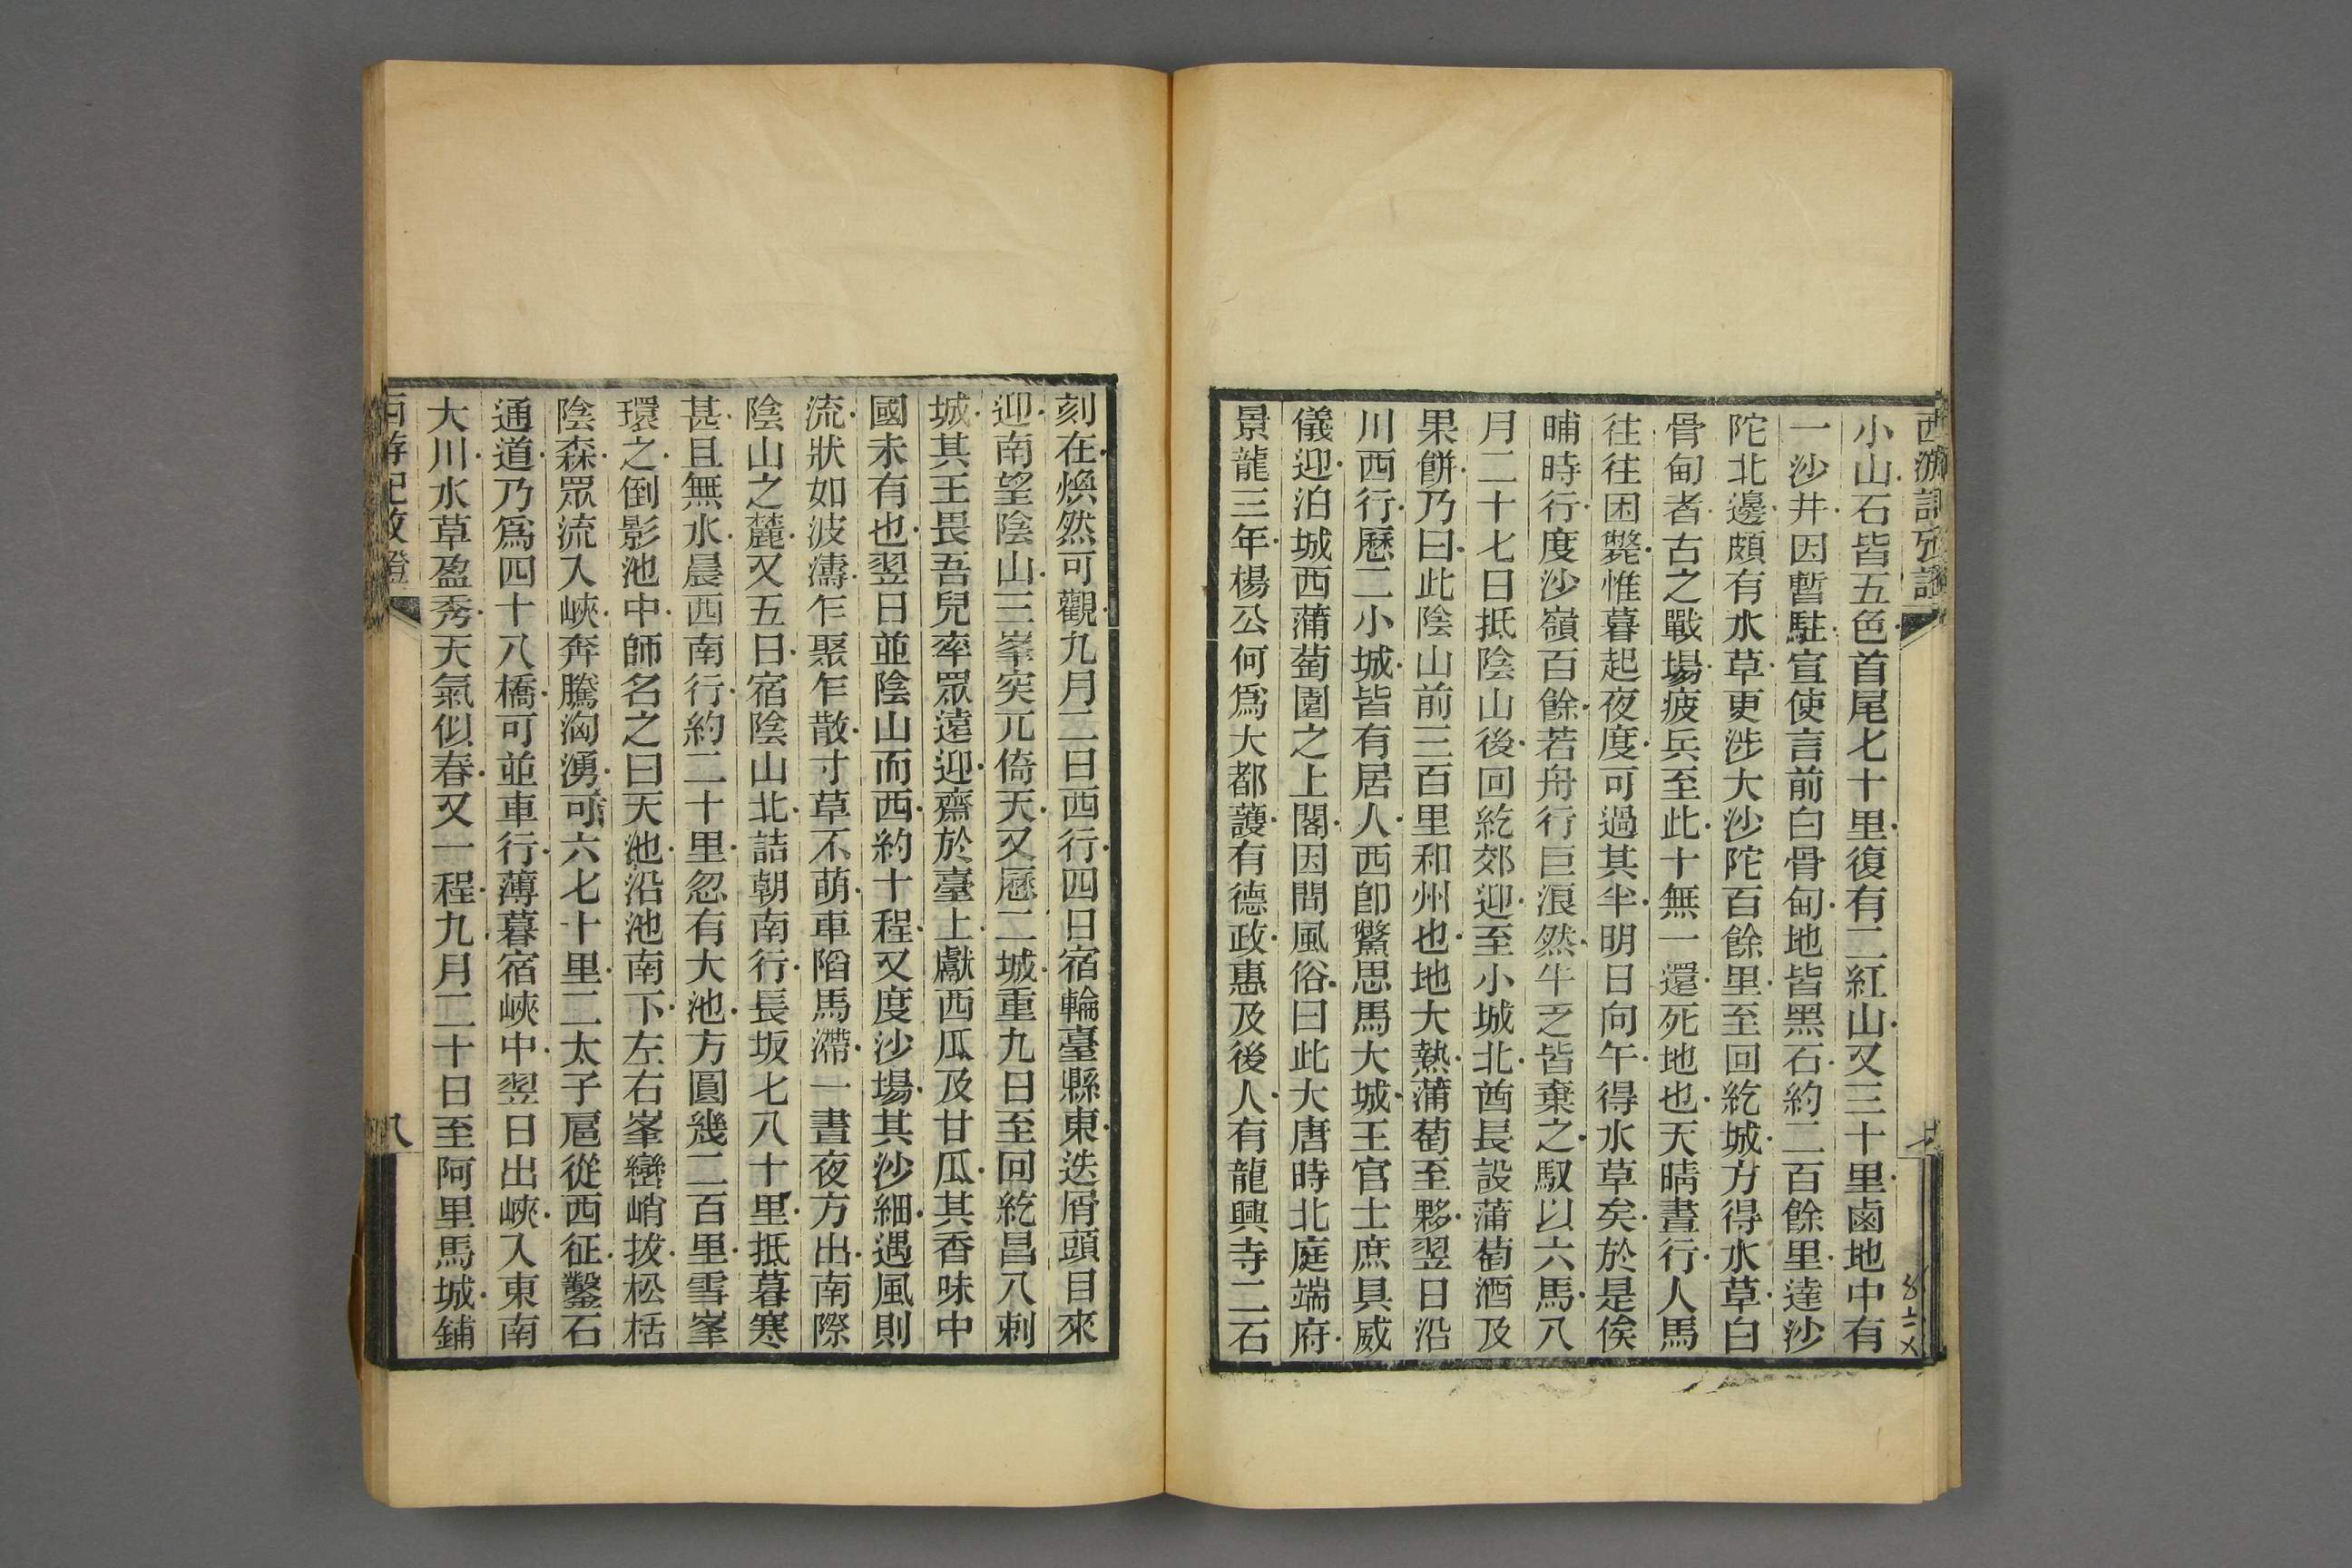 西游記攷證
小山石皆五色首尾七十里復有二紅山又三十里鹵地中有
一沙井因暫駐宣使言前白骨甸地皆黑石約二百餘里達沙
陀北邊頗有水草更涉大沙陀百餘里至回紇城方得水草白
骨甸者古之戰場疲兵至此十無一還死地也天晴晝行人馬
往往困斃惟暮起夜度可過其半明日向午得水草矣於是俟
晡時行度沙嶺百餘若舟行巨浪然牛乏皆棄之馭以六馬八
月二十七日抵陰山後回紇郊迎至小城北酋長設蒲萄酒及
果餅乃曰此陰山前三百里和州也地大熱蒲萄至夥翌日沿
川西行歷二小城皆有居人西卽鱉思馬大城王官士庶具威
儀迎泊城西蒲萄園之上閣因問風俗曰此大唐時北庭端府
景龍三年楊公何爲大都護有德政惠及後人有龍興寺二石
刻在煥然可觀九月二日西行四日宿輪臺縣東迭屑頭目來
迎南望陰山三峯突兀倚天又歷二城重九日至回紇昌八剌
城其王畏吾兒率眾遠迎齋於臺上獻西瓜及甘瓜其香味中
國未有也翌日並陰山而西約十程又度沙場其沙細遇風則
流狀如波濤乍聚乍散寸草不萌車陷馬滯一晝夜方出南際
陰山之麓又五日宿陰山北詰朝南行長坂七八十里抵暮寒
甚且無水晨西南行約二十里忽有大池方圓幾二百里雪峯
環之倒影池中師名之曰天池沿池南下左右峯巒峭拔松栝
陰森眾流入峽奔騰洶湧可六七十里二太子扈從西征鑿石
通道乃爲四十八橋可並車行薄暮宿峽中翌日出峽入東南
大川水草盈秀天氣似春又一程九月二十日至阿里馬城鋪
西游記攷證
八